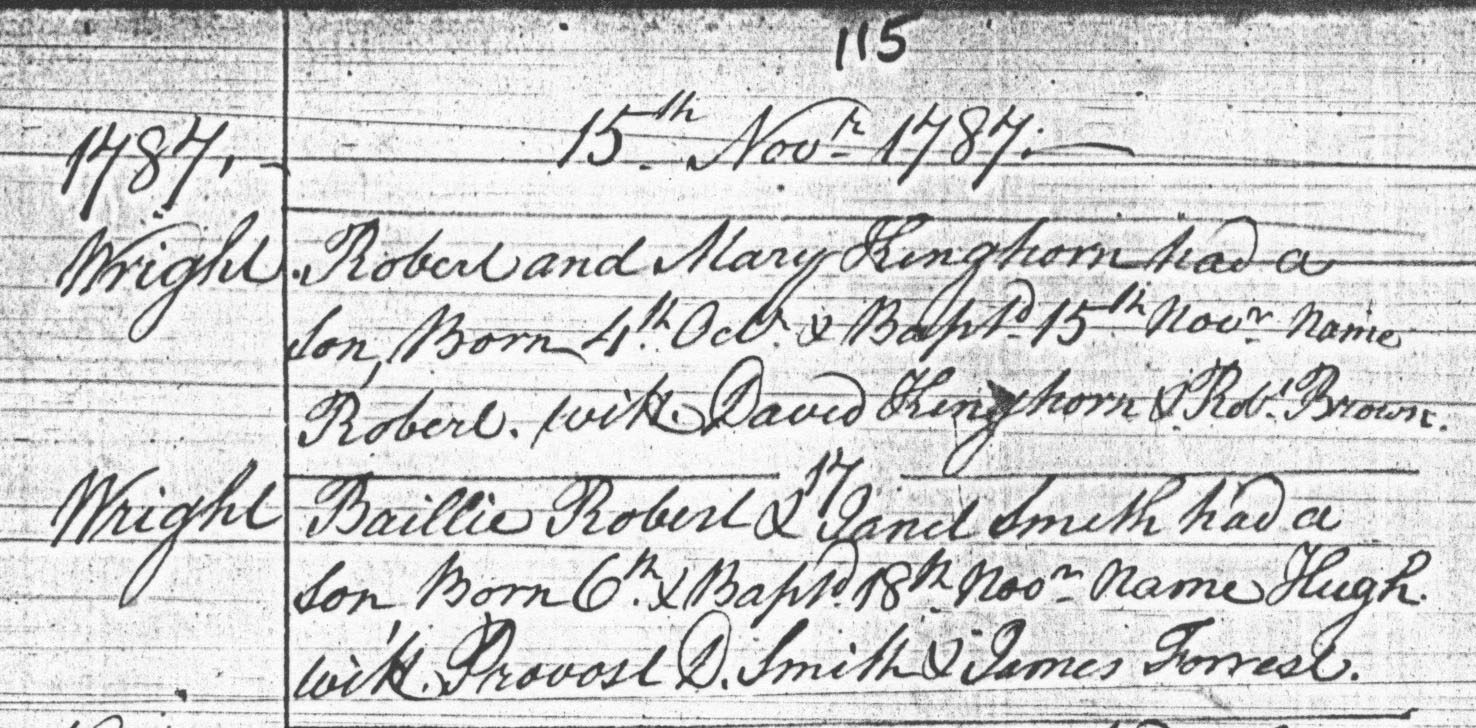 115
1787. 15th Novr 1787.
Wright. Robert and Mary Kinghorn had a
son, Born 4th Octr & Baptd 15th Novr Name
Robert. witt. David Kinghorn & Robt Brown.
17
Wright Baillie Robert & Janet Smith had a
son, Born 6th & Baptd 18th Novr Name Hugh.
witt. Provost D. Smith & James Forrest.